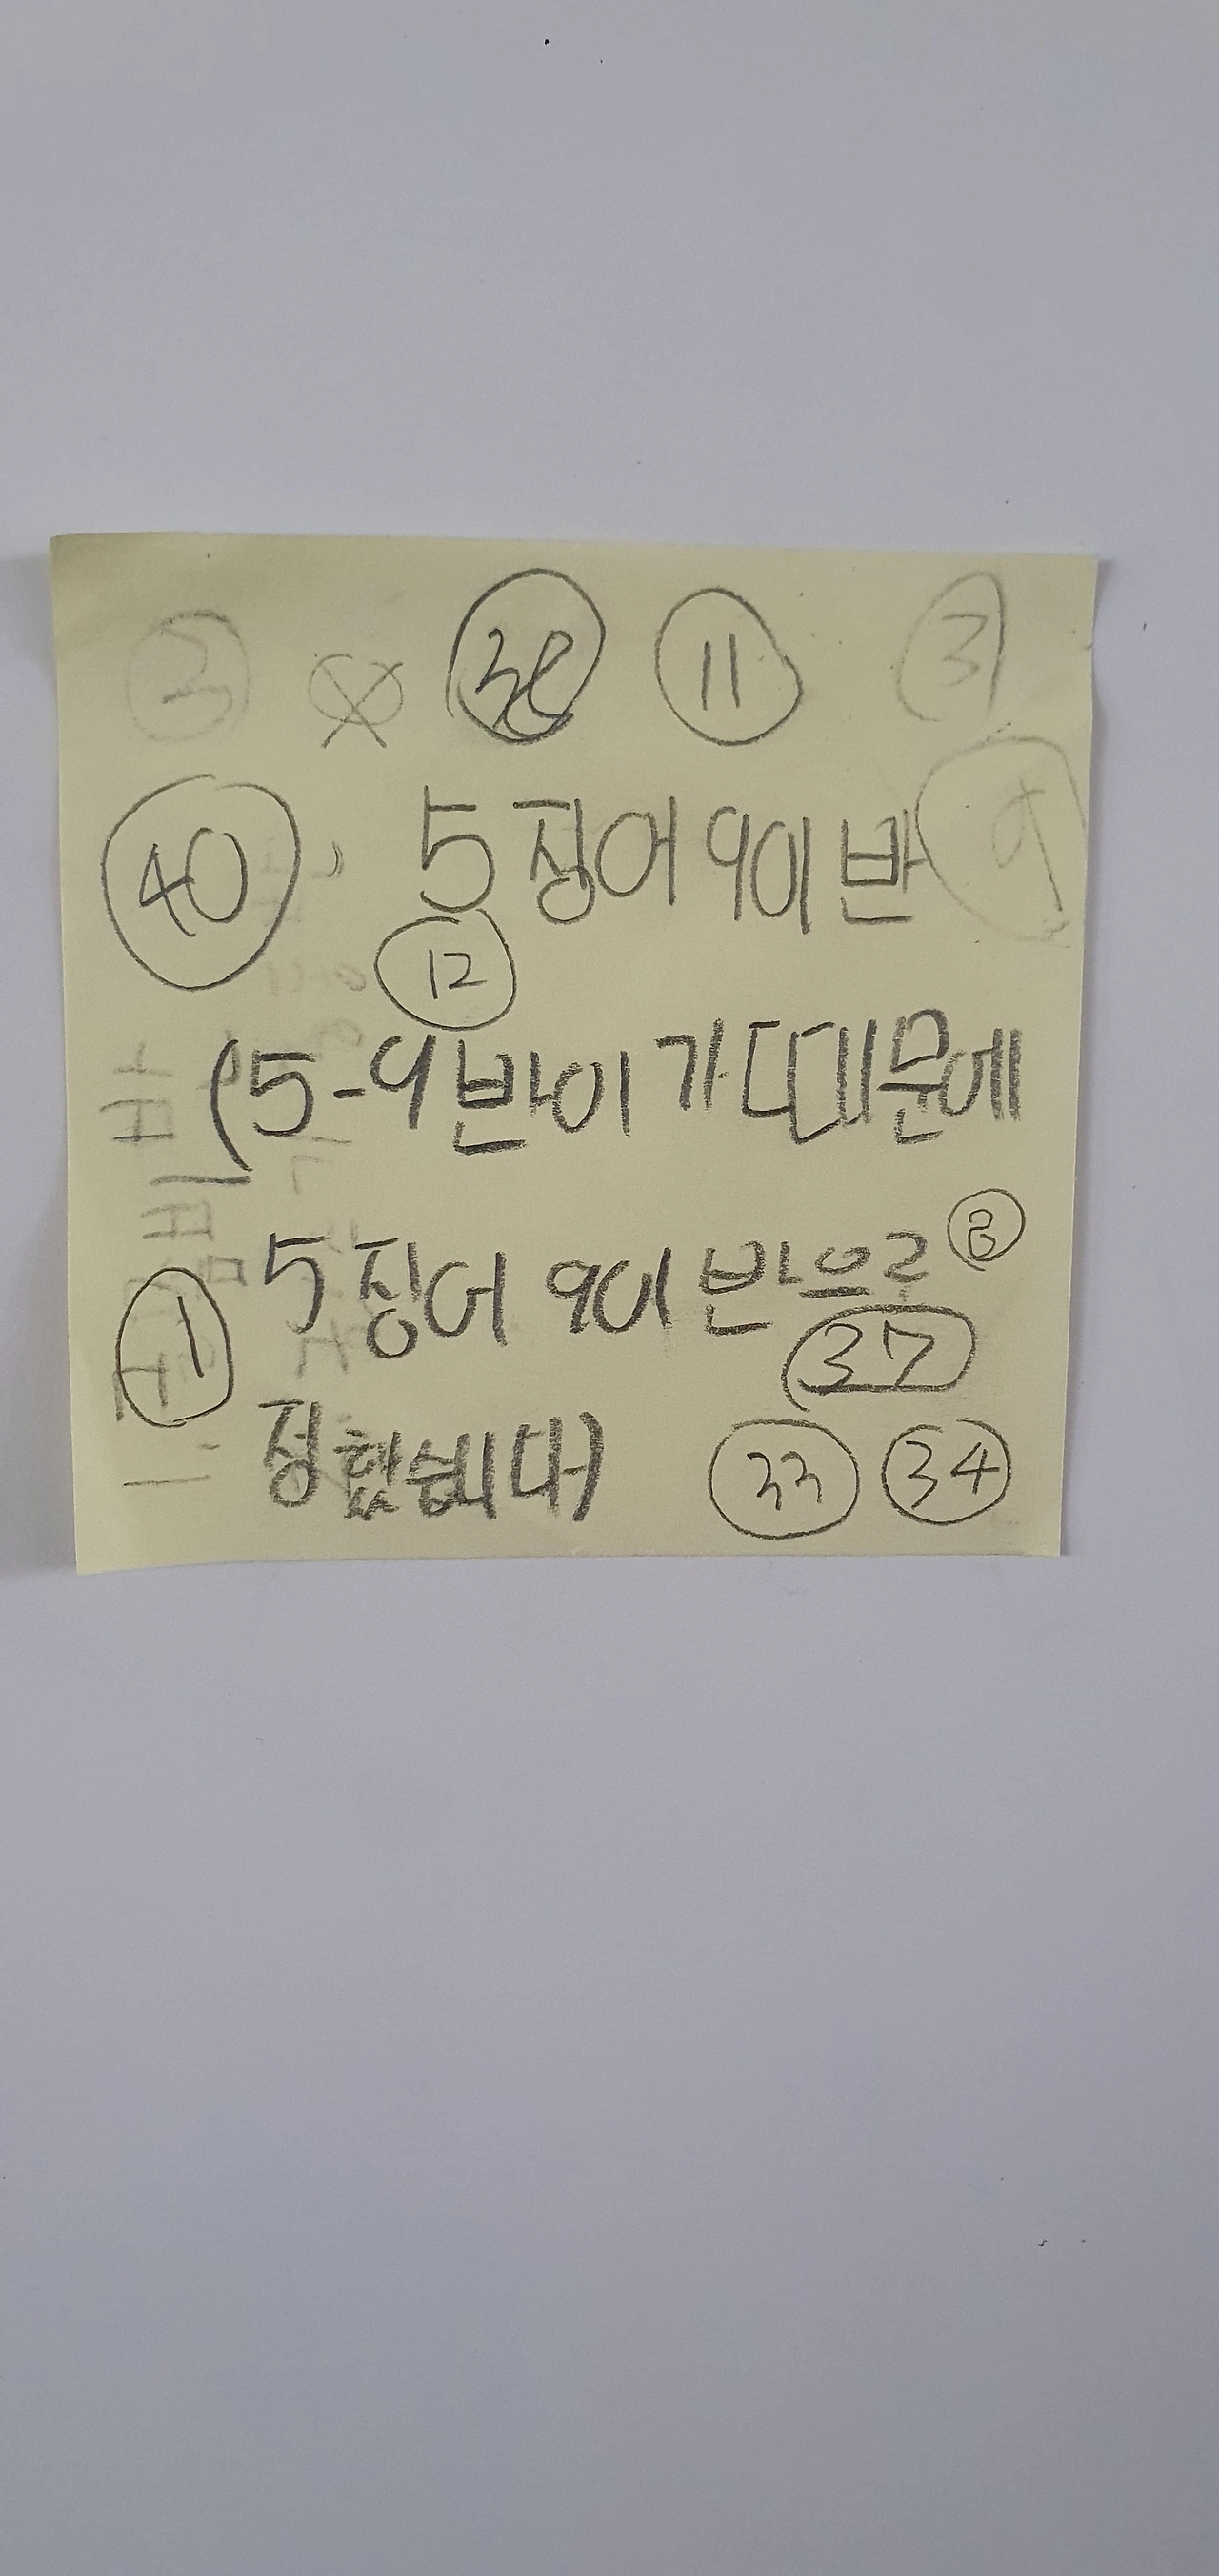 ③ ⑪ ③
㊵ 5징어 90이 반
⑫
(5-9반이기 때문에
5징어 90이 반으로 ⑧
① ㊲
정했습니다) ㉝ ㉞